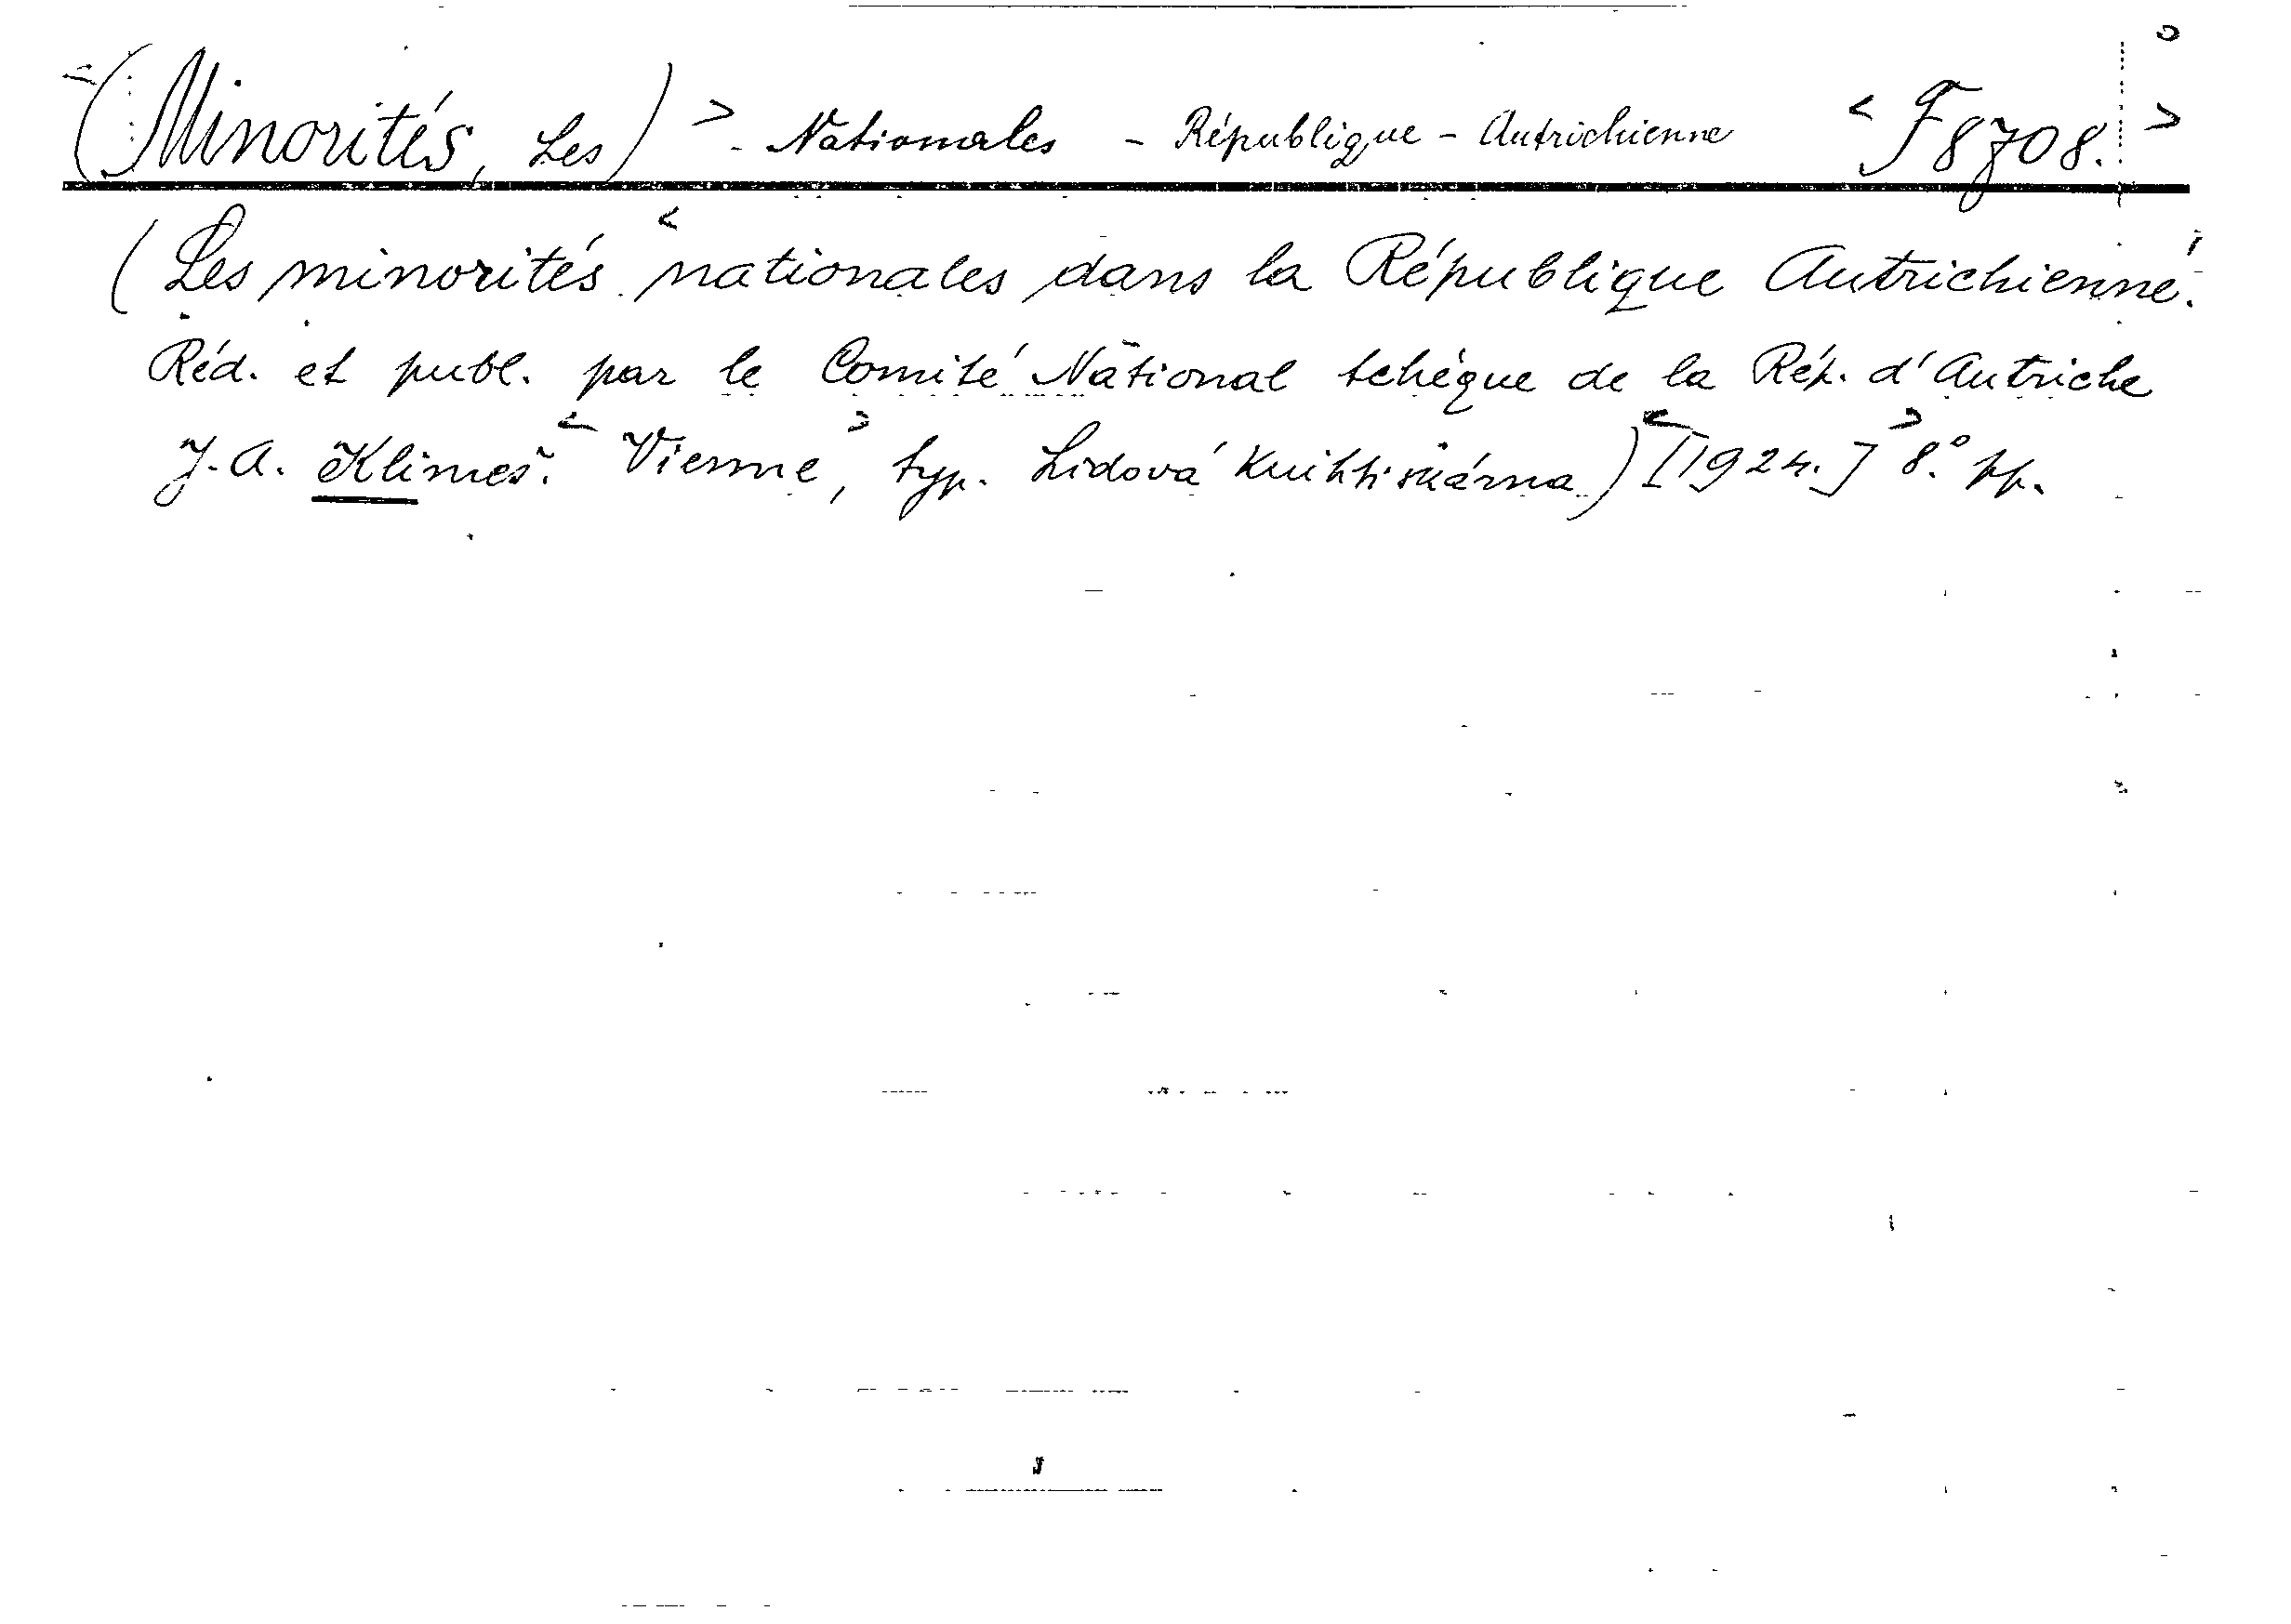 (Minorités, Les) > - Nationales - République - Autrichienne < F 8708. >
(Les minorités nationales dans la République Autrichienne.
Réd. et publ. par le Comité National tchèque de la Rép. d'Autriche
J. A. Klimeš. < Vienne > , typ. Lidová) < [1924.] > 8.° pp.